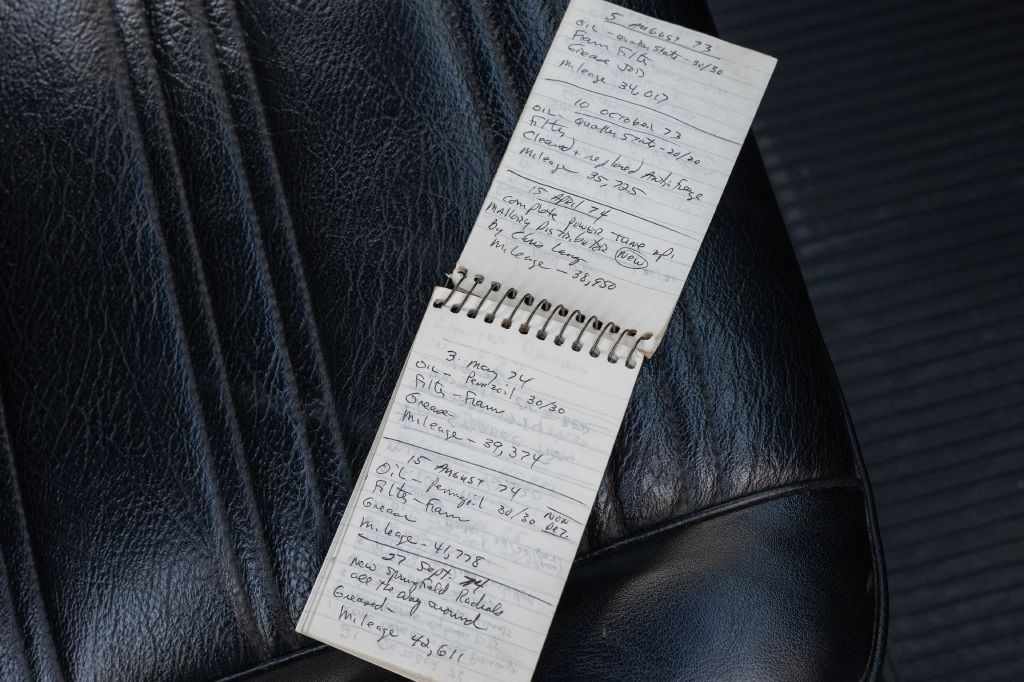 5 August 73
Oil - Quaker State - 30/30
Fram Filter
Grease Job
Mileage 34,017
10 October 73
Oil - Quaker State - 20/20
Filter
Cleaned + replaced Antifreeze
Mileage 35,725
15 April 74
Complete power tune up.
Mallory Distributor (New)
By Chris Lang
Mileage - 38,950
3. May 74
Oil - Pennzoil 30/30
Filter - Fram
Grease -
Mileage - 39,374
15 August 74
Oil - Pennzoil 30/30 Non Det.
Filter - Fram
Grease
Mileage - 41,778
27 Sept. 74
New Springfield Radials
all the way around
Greased -
Mileage 42,611